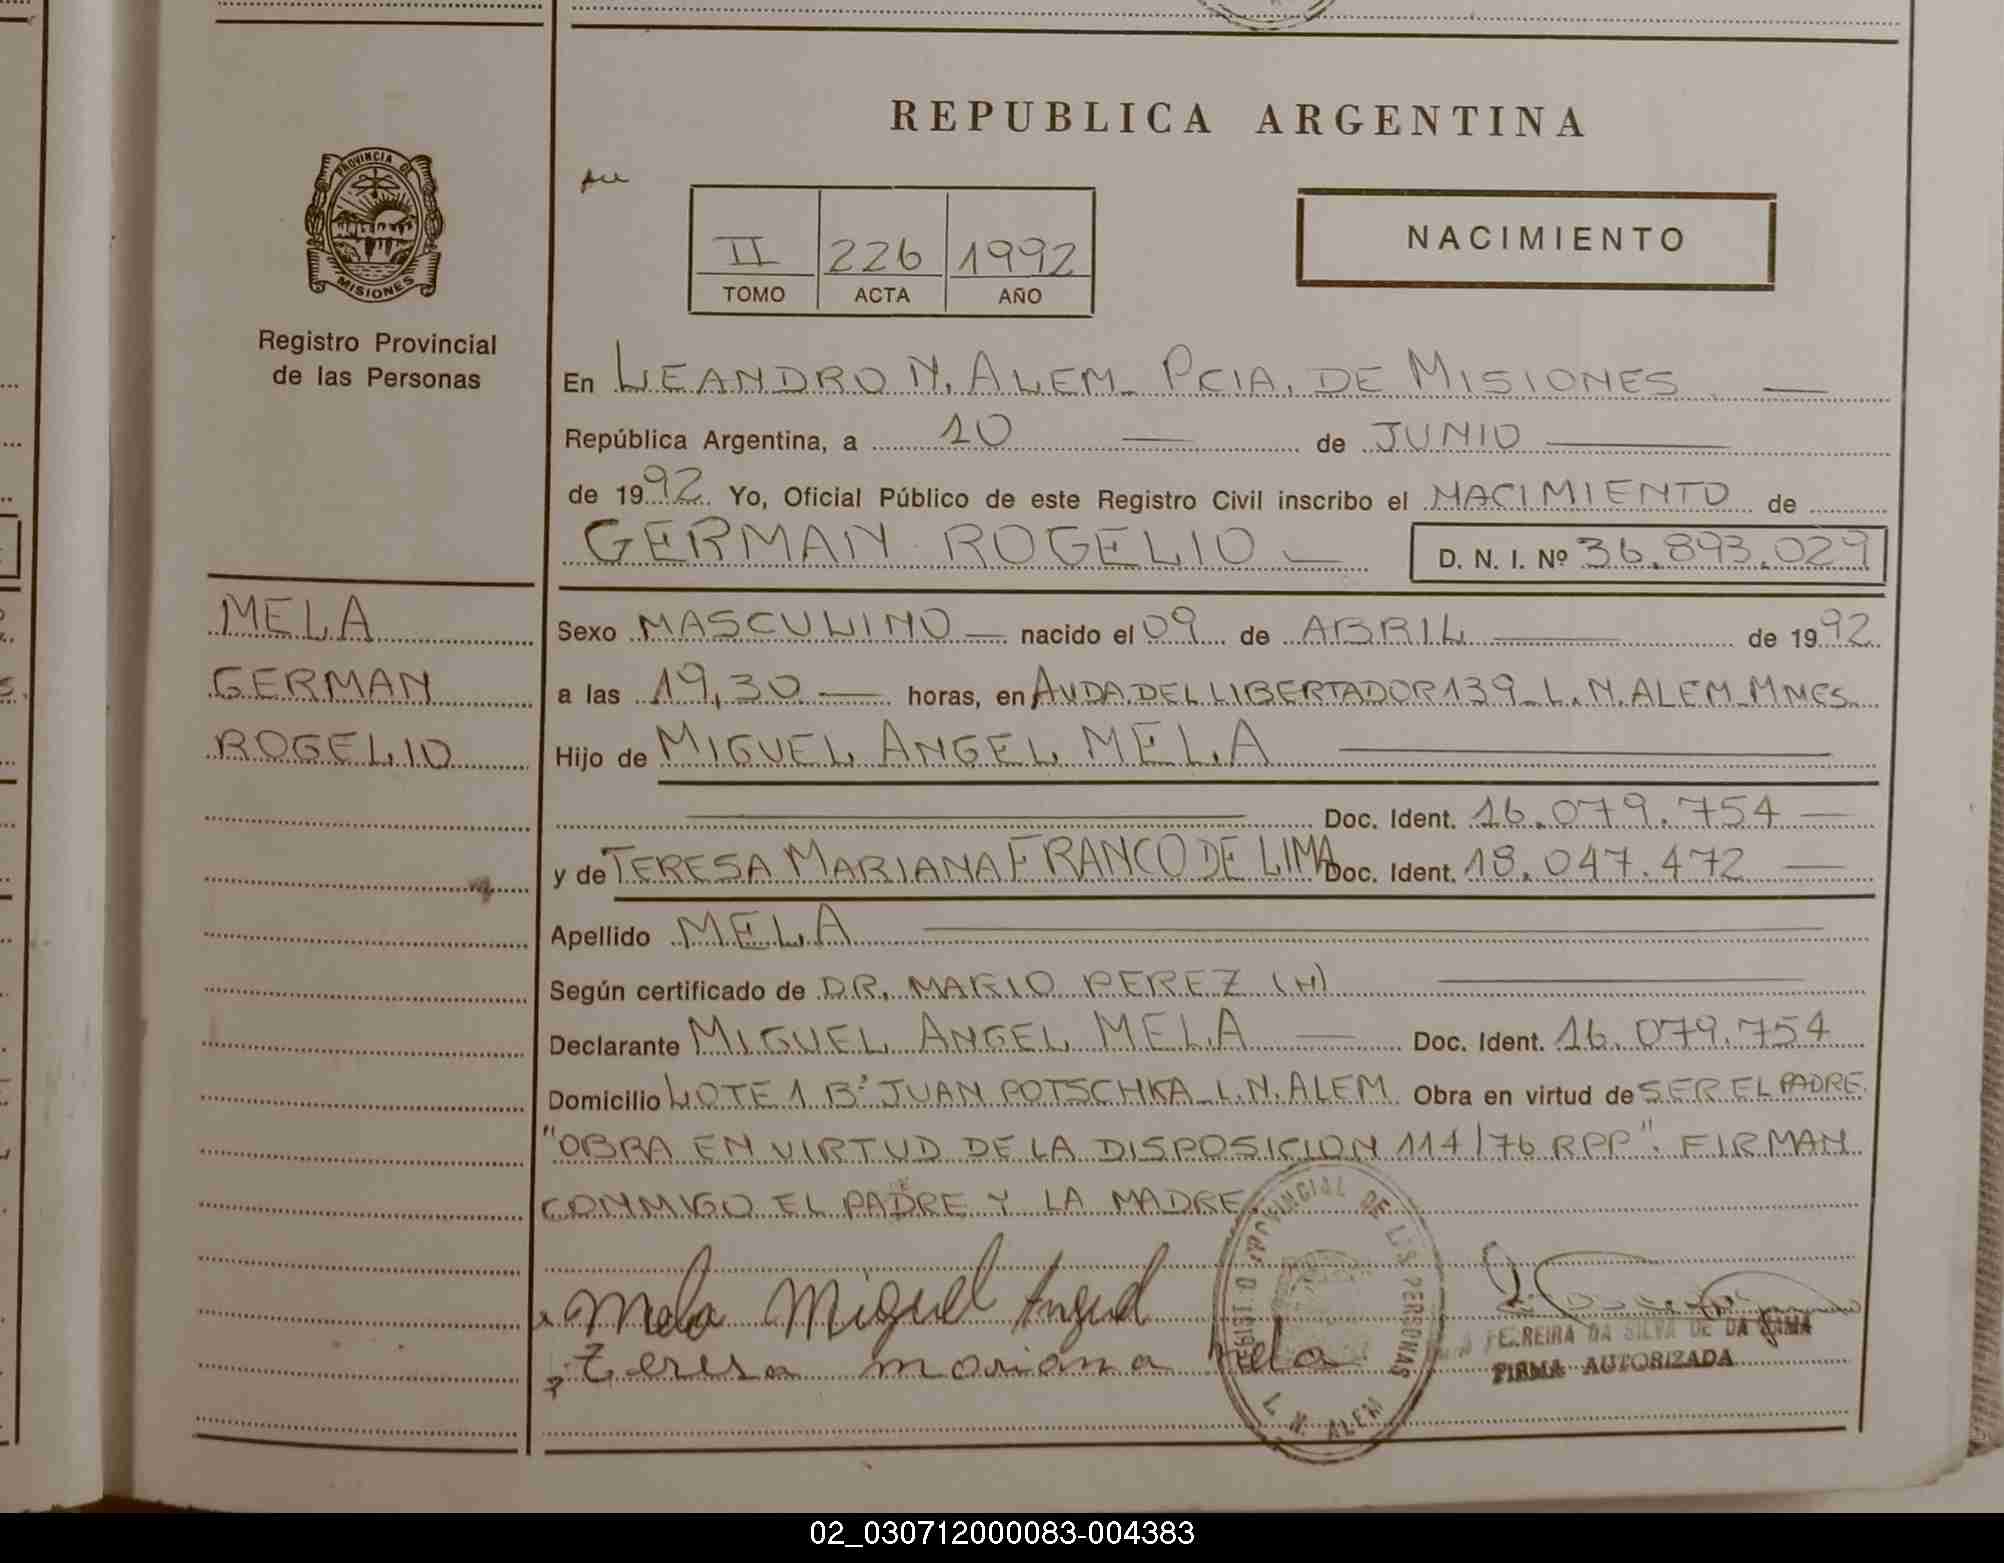 REPUBLICA ARGENTINA
PROVINCIA DE
MISIONES
Registro Provincial
de las Personas
II 226 1992
TOMO ACTA AÑO
NACIMIENTO
En LEANDRO N. ALEM_ PCIA. DE MISIONES
República Argentina, a 10 de JUNIO
de 1992. Yo, Oficial Público de este Registro Civil inscribo el NACIMIENTO de
GERMAN ROGELIO D. N. I. Nº 36.893.029
MELA
GERMAN
ROGELIO
Sexo MASCULINO nacido el 09 de ABRIL de 1992
a las 19,30 horas, en AVDA. DEL LIBERTADOR 139_ L. N. ALEM_ MNES.
Hijo de MIGUEL ANGEL MELA
Doc. Ident. 16.079.754
y de TERESA MARIANA FRANCO DE LIMA Doc. Ident. 18.047.472
Apellido MELA
Según certificado de DR. MARIO PEREZ (H)
Declarante MIGUEL ANGEL MELA Doc. Ident. 16.079.754
Domicilio LOTE 1 Bº JUAN POTSCHKA_ L.N. ALEM Obra en virtud de SER EL PADRE.
"OBRA EN VIRTUD DE LA DISPOSICION 114/76 RPP". FIRMAN
CONMIGO EL PADRE Y LA MADRE
Mela Miguel Angel
teresa mariana Mela
PROVINCIAL DE LAS PERSONAS
L. N. ALEM
FERREIRA DA SILVA DE DA
FIRMA AUTORIZADA
02_030712000083-004383